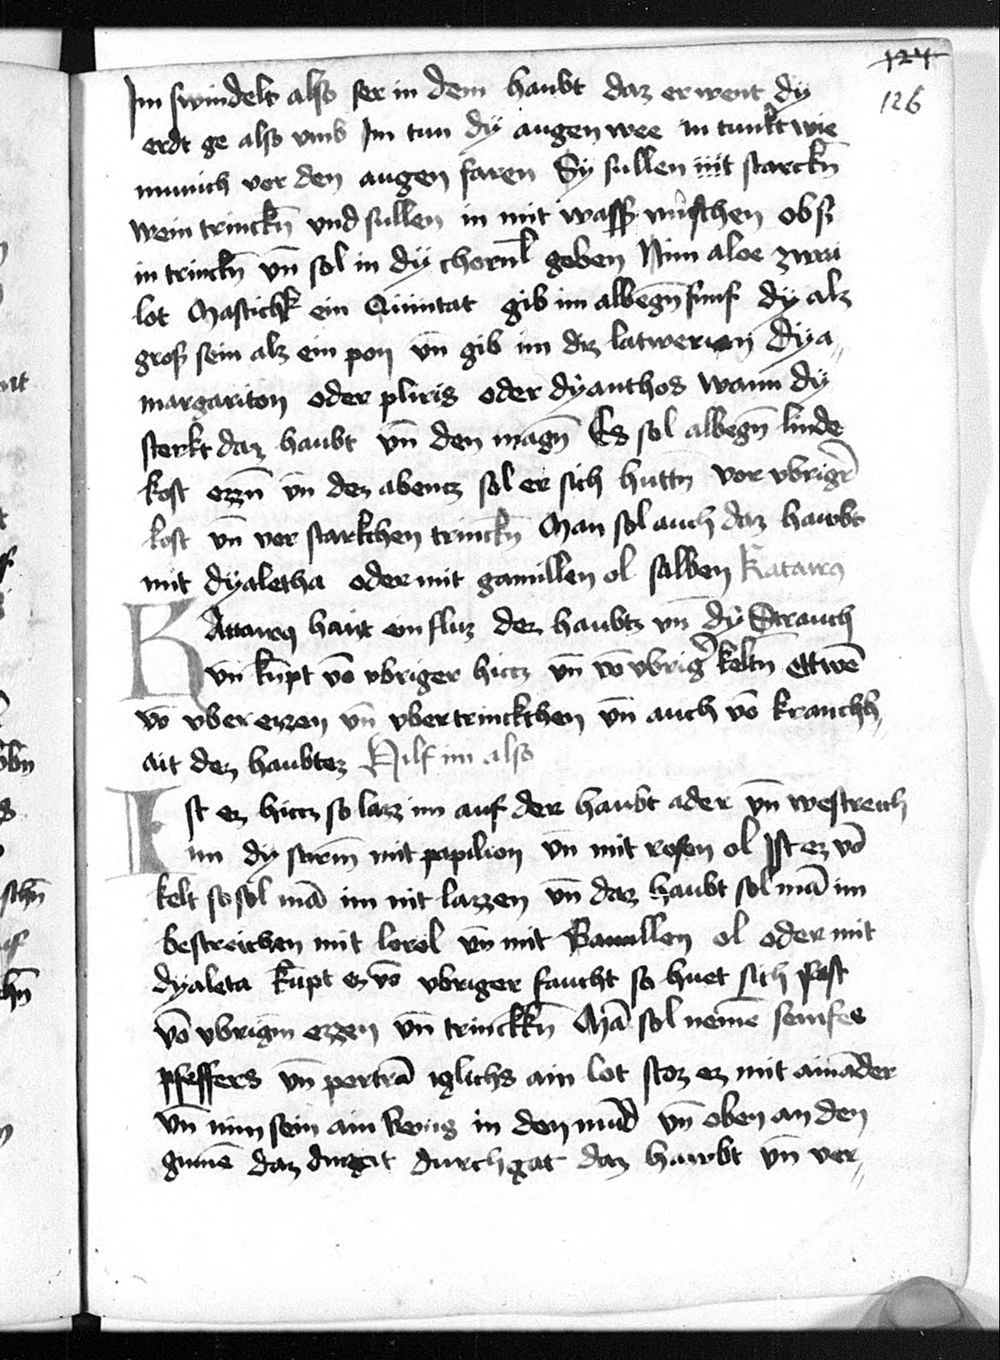 124
126
Im swindelt also ser in dem haubt daz er went dy
erdt ge also vmb Im tun dy augen wee in tunkt wie
munich vor den augen faren Sy sullen nit starckn̄
wein trinckn̄ vnd sullen in mit wasser mischen ob sy
in trinckn̄ vn̄ sol in dy chornl geben Nim aloe zwai
lot Mastick ein Quintat gib im albegn̄ funf dy alz
gross sein alz ein pon vn̄ gib im dis latwerien dya„
margariton oder pliris oder dyanthos wann dy
sterkt daz haubt vn̄ den magn̄ Es sol albegn̄ linde
kost ezzn̄ vn̄ dez abentz sol er sich huttn̄ vor vbriger
kost vn̄ vor starkchen trinckn̄ Man sol auch daz hawbt
mit dyaletha oder mit gamillen ol salben Katarrus
KAttarrus haist ein fluz dez haubtz vn̄ dy Strauch
vn̄ kupt vō vbriger hitz vn̄ vō vbriger keltn̄ Ettwē
vō vber ezzen vn̄ vbertrinckchen vn̄ auch vō kranchh„
ait dez haubtez Hilf im also
Ist ez hitz so lazz im auf der haubt ader vn̄ westreich
im dy stirn̄ mit papilion vn̄ mit rosen ol Ist ez vō
kelt so sol mā im nit lazzen vn̄ daz haubt sol mā im
bestreichen mit lorol vn̄ mit Bamillen ol oder mit
dyaleta kūpt ez vō vbriger faucht so huet sich fast
vō vbrigm ezzen vn̄ trinckkn̄ Mā sol nemē senifes
pfeffers vn̄ pertrā iglichs ain lot stoz ez mit aināder
vn̄ nim sein ain wenig in den mūd vn̄ oben an den
gumē daz durgat durchgat daz hawbt vn̄ ver„